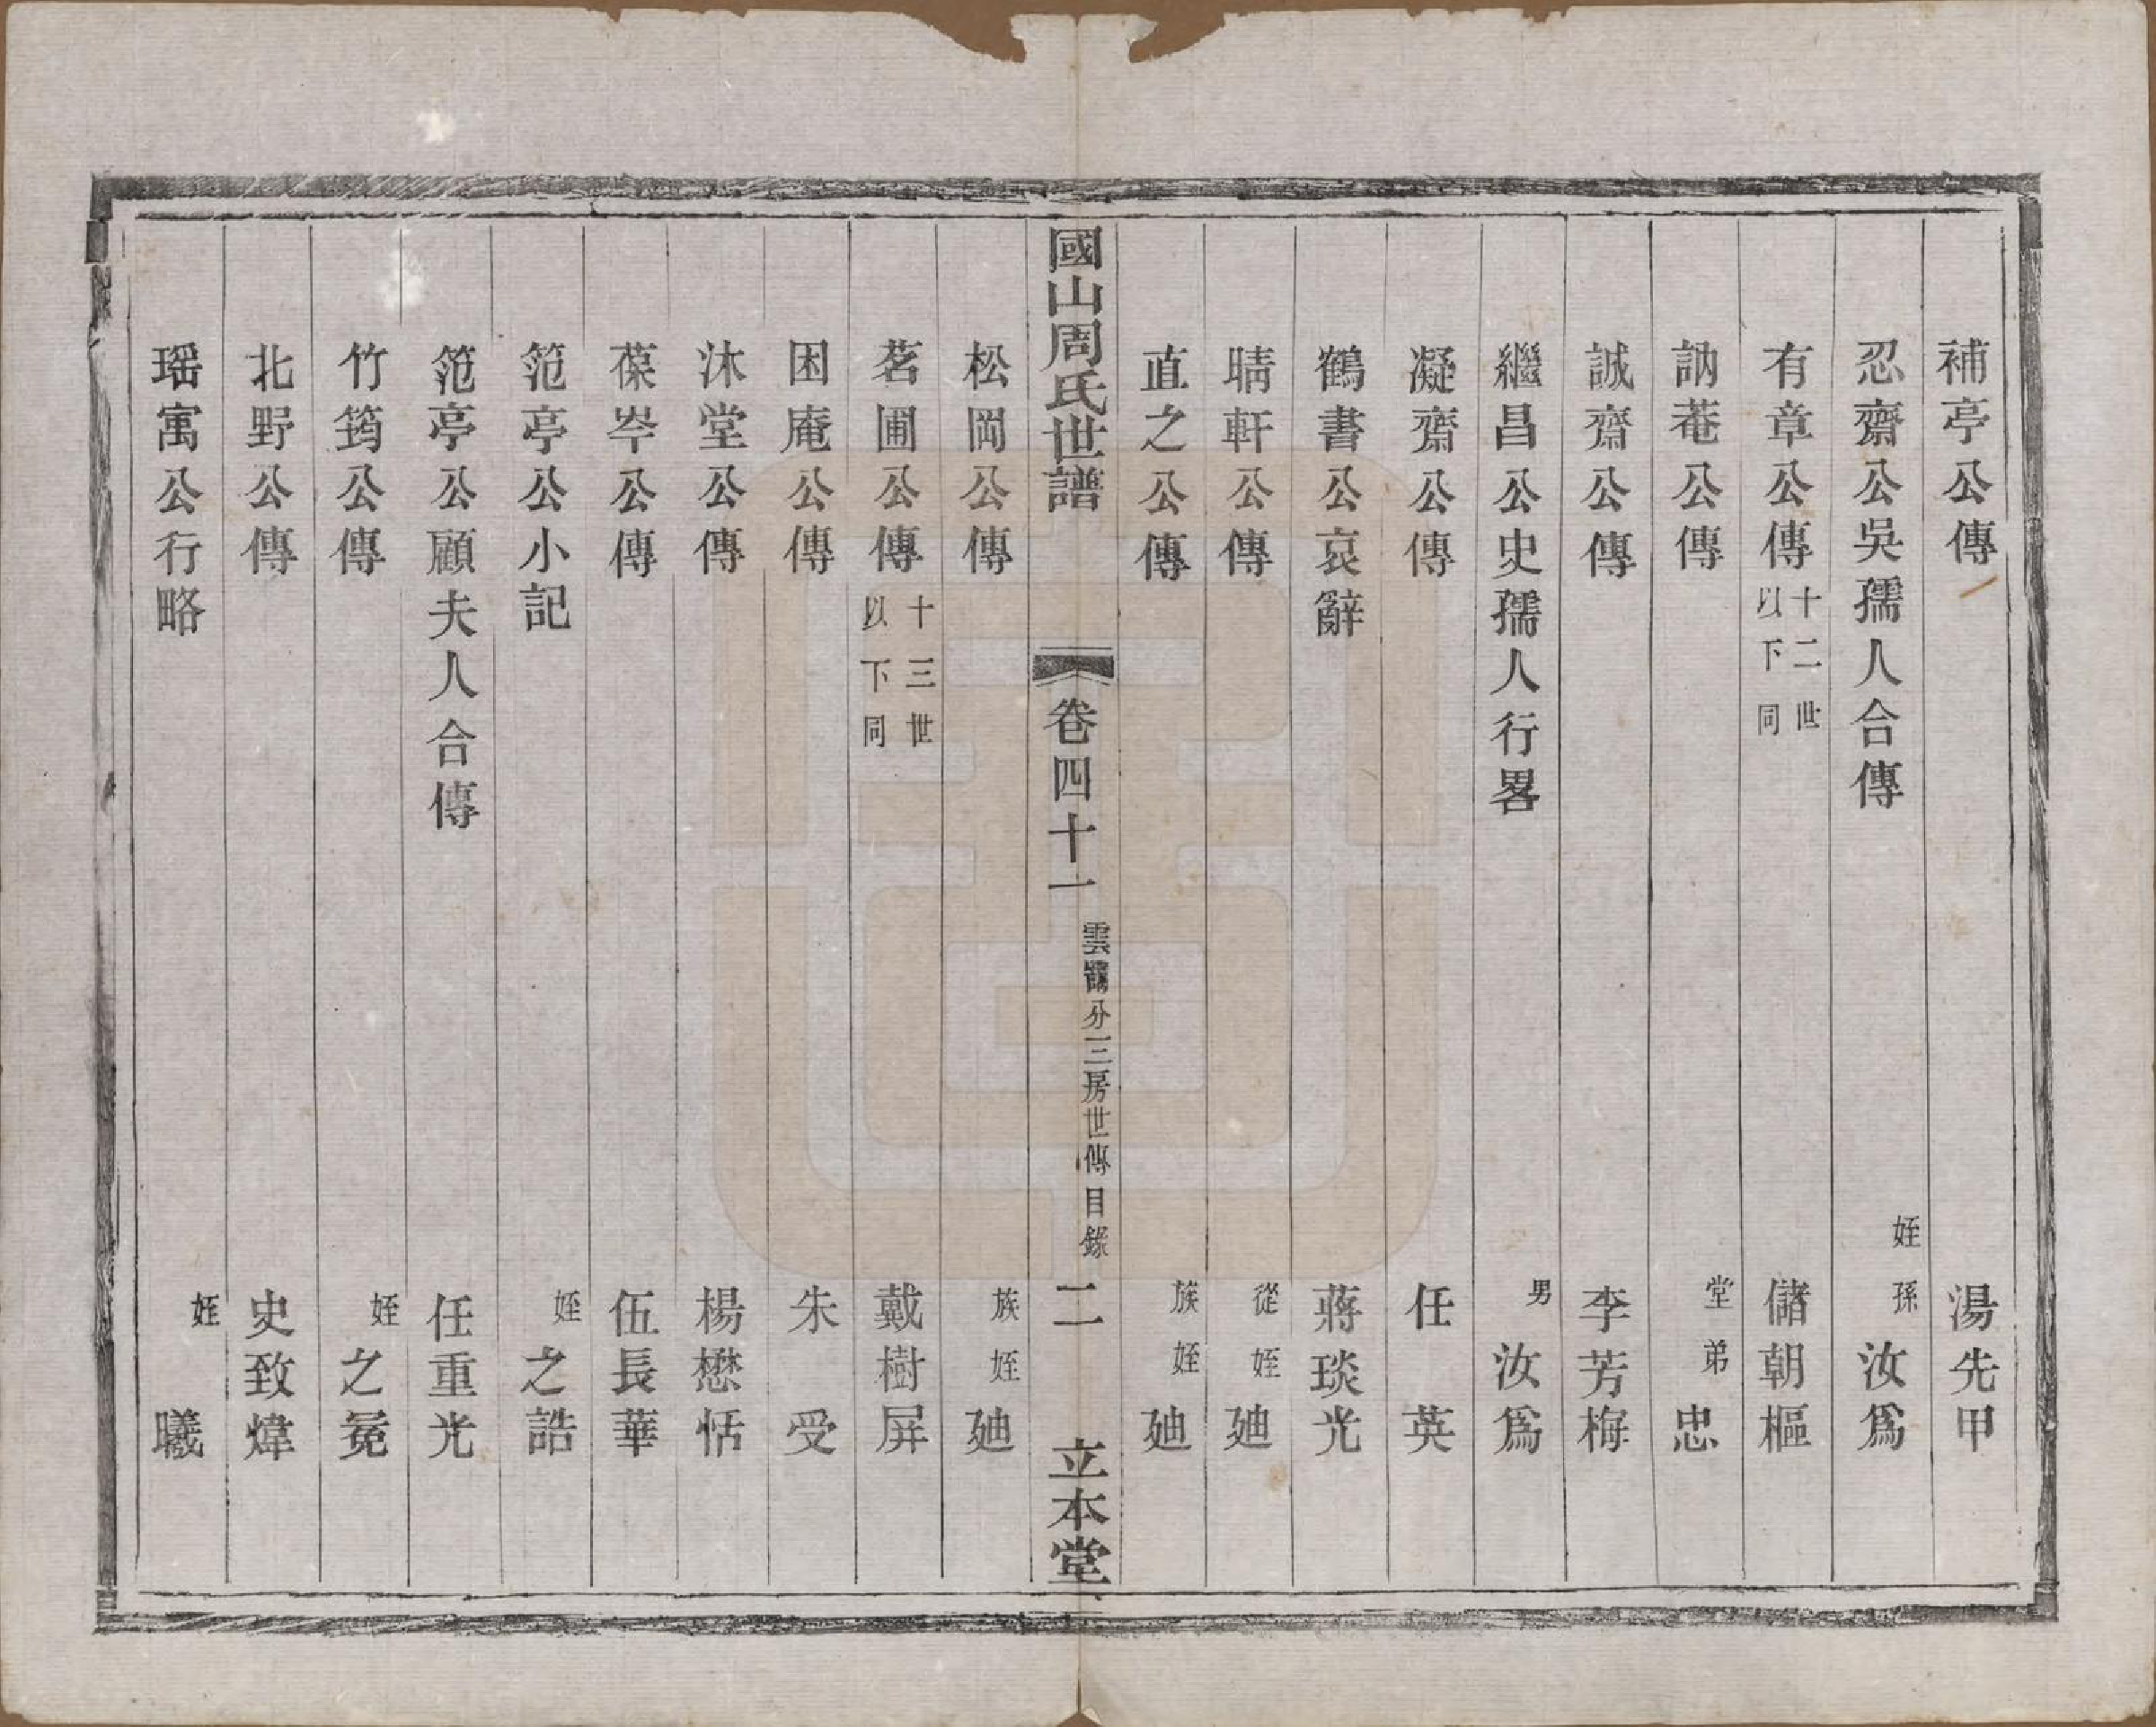 補亭公傳 湯先甲
忍齋公吳孺人合傳 姪孫汝爲
有章公傳 十二世以下同 儲朝樞
訥菴公傳 堂弟忠
誠齋公傳 李芳梅
繼昌公史孺人行畧 男汝爲
凝齋公傳 任英
鶴書公哀辭 蔣琰光
晴軒公傳 從姪廸
直之公傳 族姪廸
國山周氏世譜 卷四十一 雲 分三房世傳目錄 二 立本堂
松岡公傳 族姪廸
茗圃公傳 十三世以下同 戴樹屏
困庵公傳 朱受
沐堂公傳 楊懋恬
葆岑公傳 伍長華
笵亭公小記 姪之誥
笵亭公顧夫人合傳 任重光
竹筠公傳 姪之冕
北野公傳 史致煒
瑶寓公行略 姪曦